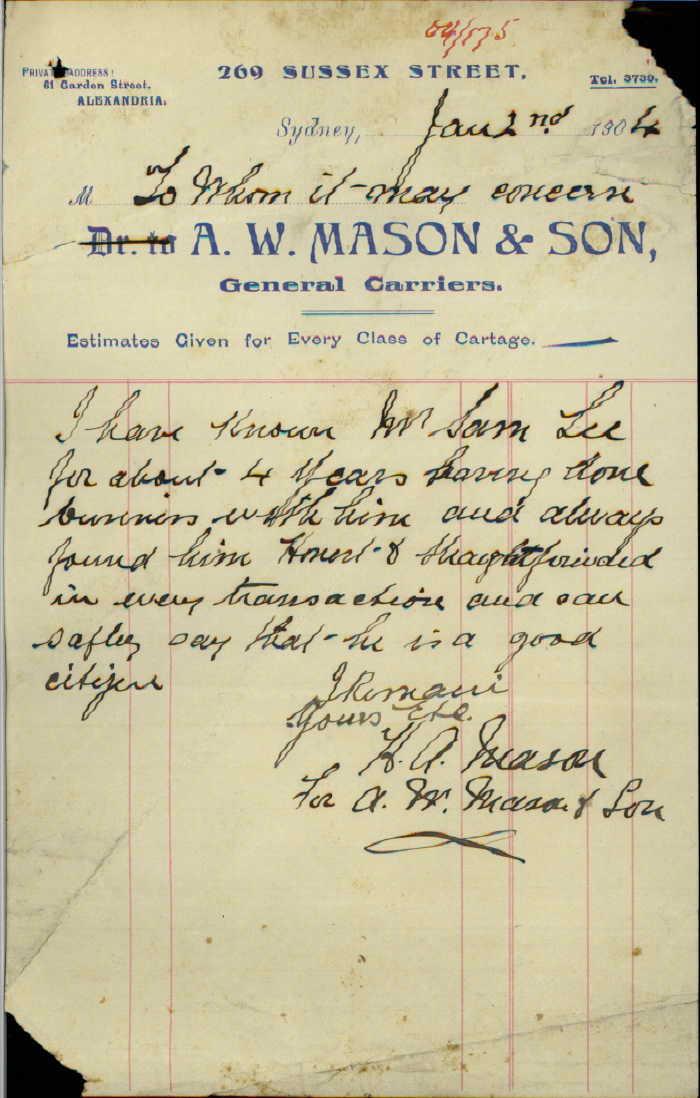 04/175
269 SUSSEX STREET.
PRIVATE ADDRESS:
61 Garden Street.
ALEXANDRIA.
Tel. 3730.
Sydney, Jan 2nd 1904
M To Whom it may concern
Dr. to A. W. MASON & SON,
General Carriers.
Estimates Given for Every Class of Cartage.
I have Known Mr Sam Lee
for about 4 Years having done
business with him and always
found him Honest & straightforward
in every transaction and can
safley say that he is a good
citizen
I Remain
Yours Etc.
H. A. Mason
For A. W. Mason & Son